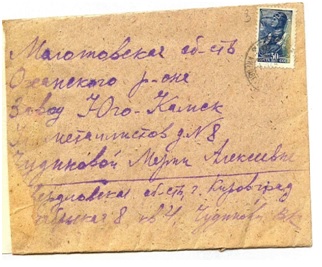 Молотовская область
Оханского р-она
Завод Юго-Камск
Металлистов д N8
Чудиновой Марии Алексеевне
Свердловская область г. Кировград
8 кв 4, Чудинова
30